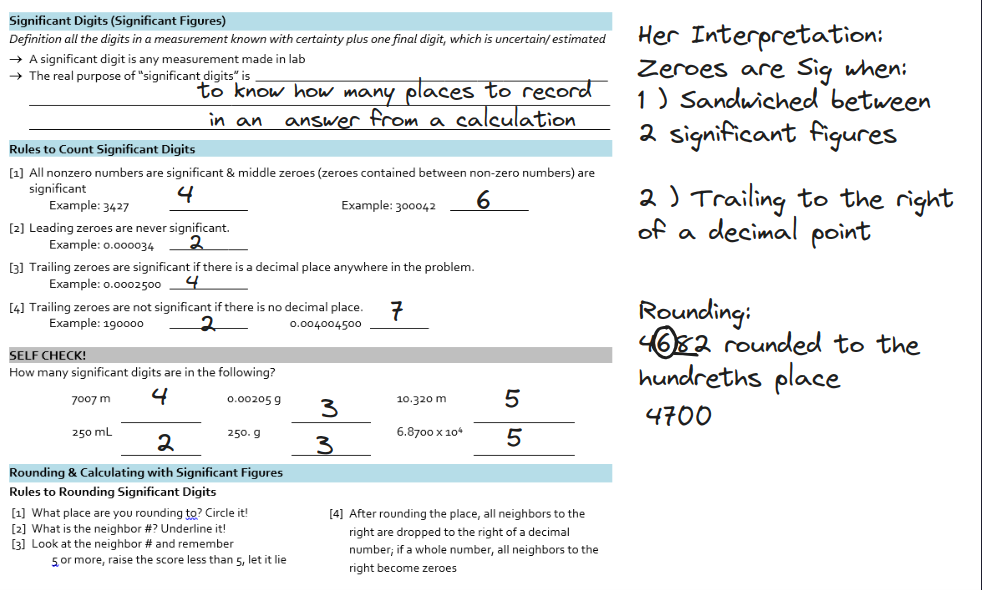 Significant Digits (Significant Figures)
Definition all the digits in a measurement known with certainty plus one final digit, which is uncertain/ estimated
→ A significant digit is any measurement made in lab
→ The real purpose of "significant digits" is
to know how many places to record
in an answer from a calculation
Rules to Count Significant Digits
[1] All nonzero numbers are significant & middle zeroes (zeroes contained between non-zero numbers) are
significant
Example: 3427 4 Example: 300042 6
[2] Leading zeroes are never significant.
Example: 0.000034 2
[3] Trailing zeroes are significant if there is a decimal place anywhere in the problem.
Example: 0.0002500 4
[4] Trailing zeroes are not significant if there is no decimal place.
Example: 190000 2 0.004004500 7
SELF CHECK!
How many significant digits are in the following?
7007 m 4 0.00205 g 3 10.320 m 5
250 mL 2 250. g 3 6.8700 x 10⁴ 5
Rounding & Calculating with Significant Figures
Rules to Rounding Significant Digits
[1] What place are you rounding to? Circle it!
[2] What is the neighbor #? Underline it!
[3] Look at the neighbor # and remember
5 or more, raise the score less than 5, let it lie
[4] After rounding the place, all neighbors to the
right are dropped to the right of a decimal
number; if a whole number, all neighbors to the
right become zeroes
Her Interpretation:
Zeroes are Sig when:
1 ) Sandwiched between
2 significant figures
2 ) Trailing to the right
of a decimal point
Rounding:
4682 rounded to the
hundreths place
4700